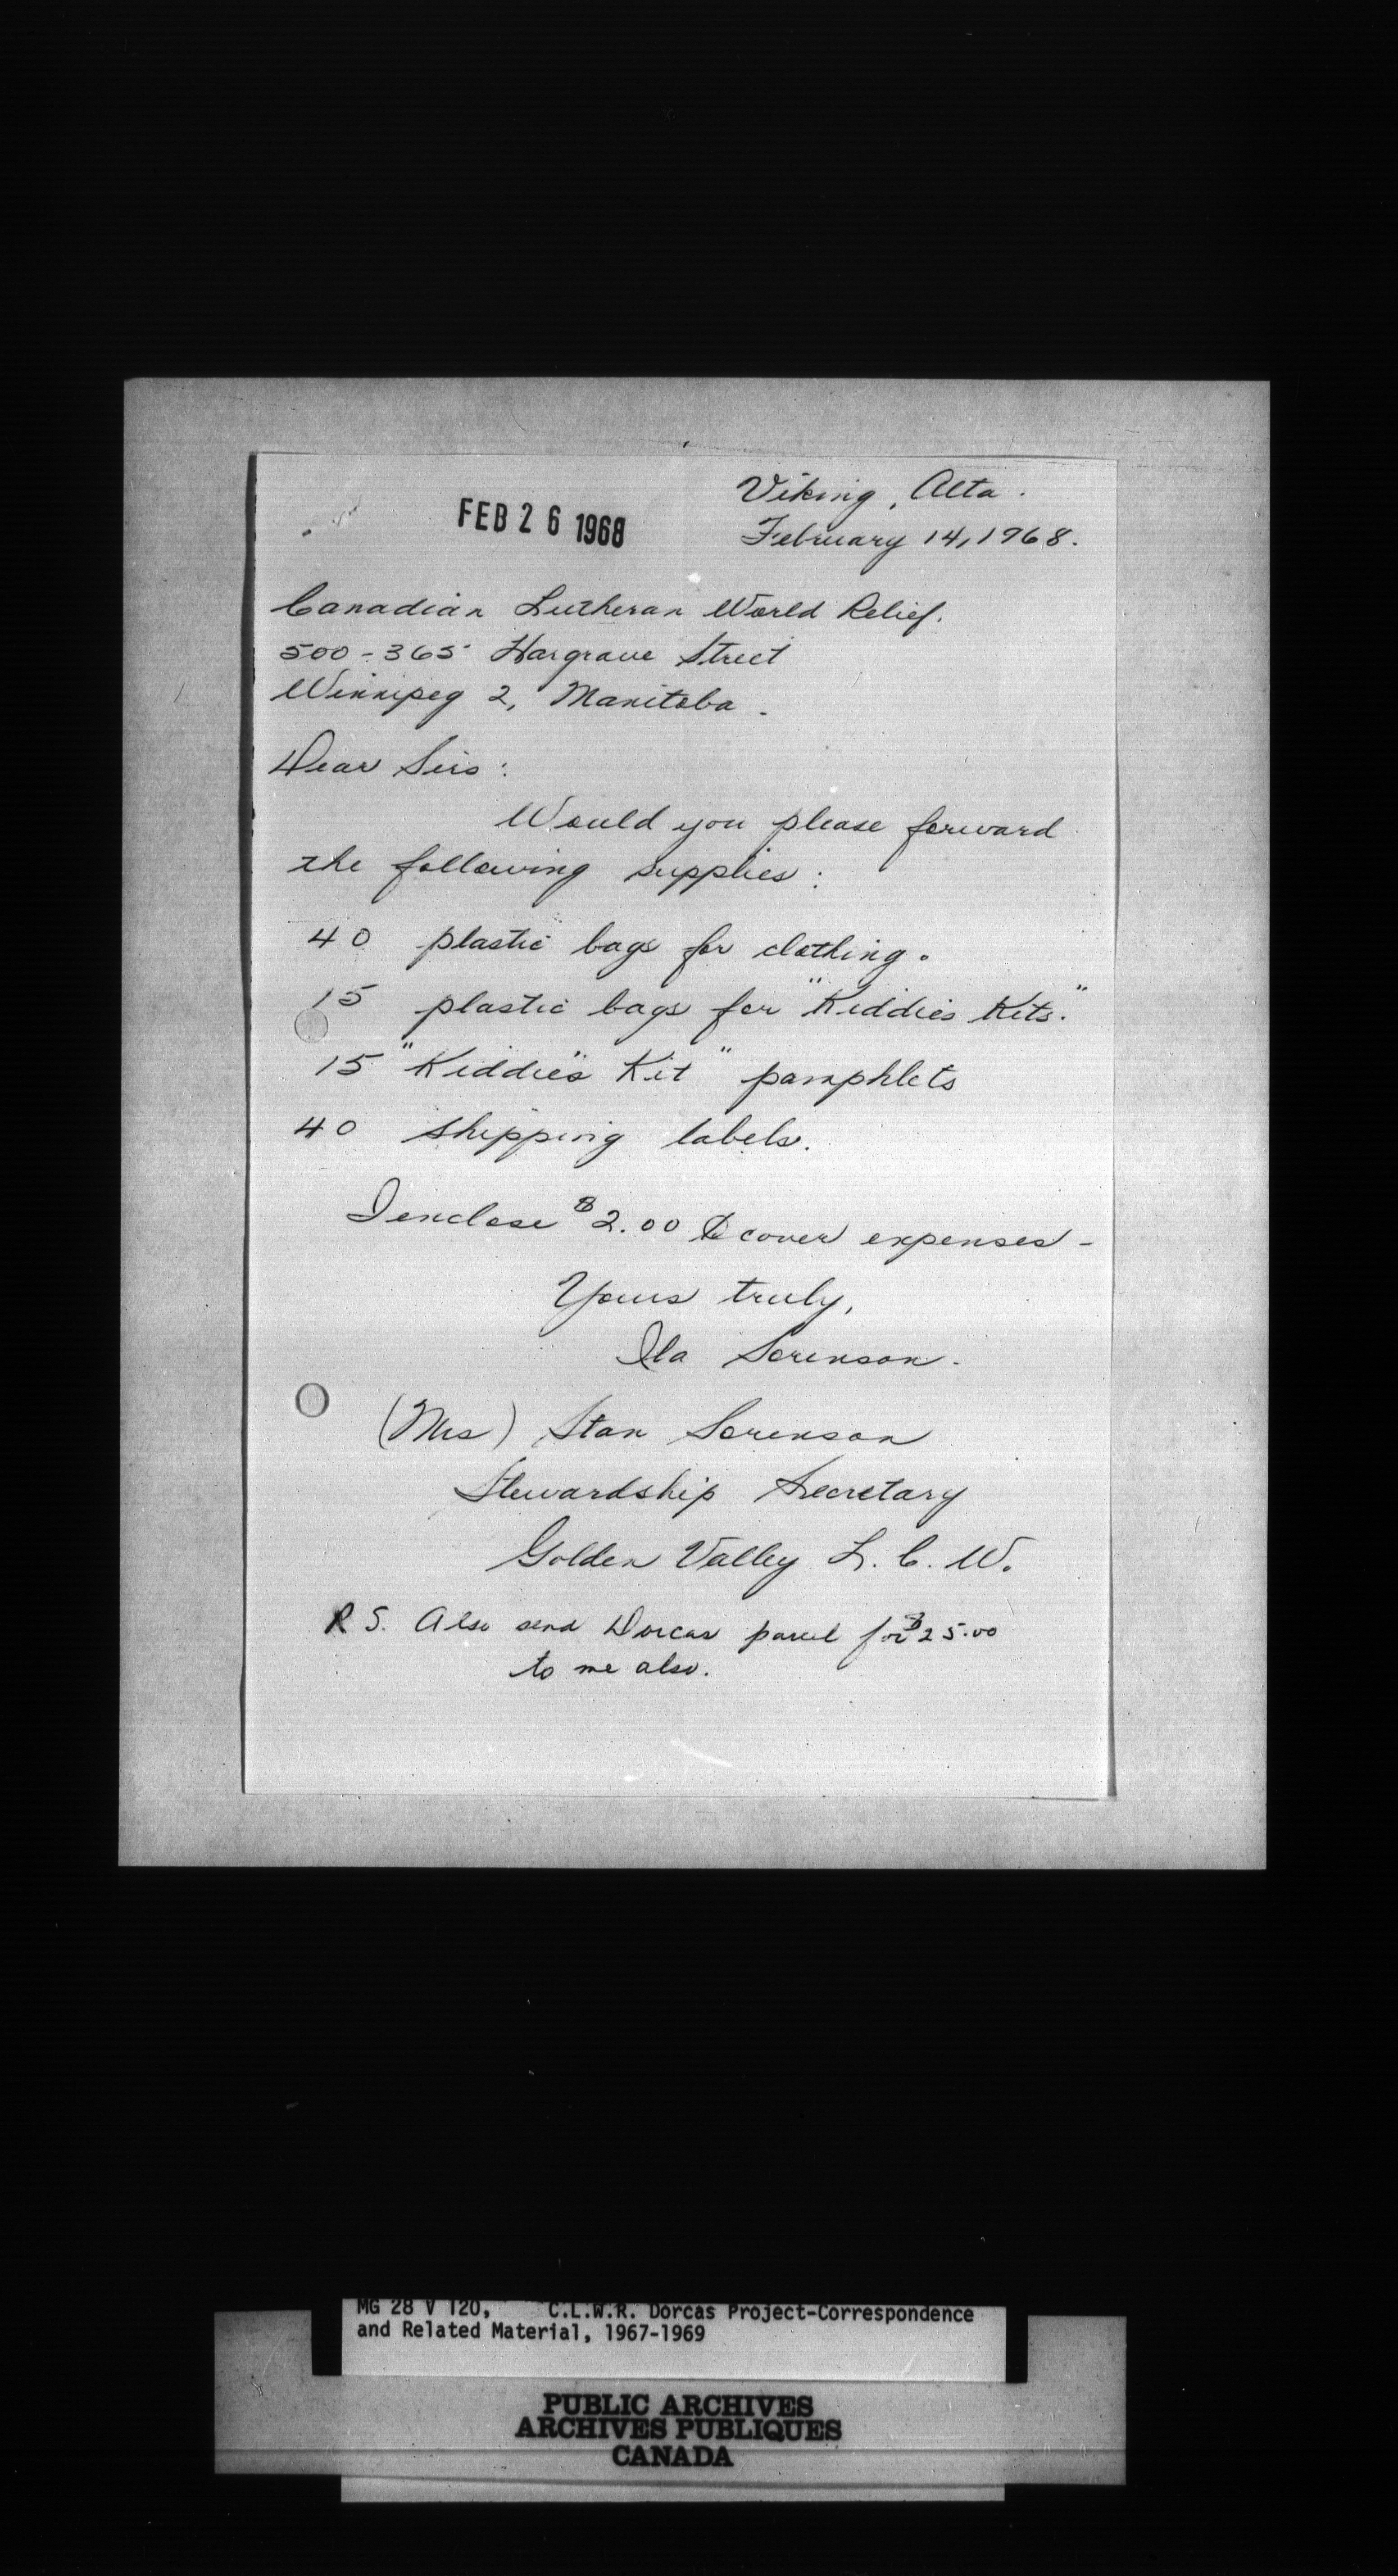 Viking, Alta.
FEB 26 1968
February 14, 1968.
Canadian Lutheran World Relief.
500-365 Hargrave Street
Winnipeg 2, Manitoba.
Dear Sirs:
Would you please forward
the following supplies:
40 plastic bags for clothing.
15 plastic bags for "Kiddies Kits."
15 "Kiddie's Kit" pamphlets
40 shipping labels.
I enclose $2.00 to cover expenses-
Yours truly,
Ila Sorenson.
(Mrs) Stan Sorenson
Stewardship Secretary
Golden Valley L.C.W.
P.S. Also send Dorcas parcel for $25.00
to me also.
MG 28 V 120, C.L.W.R. Dorcas Project-Correspondence
and Related Material, 1967-1969
PUBLIC ARCHIVES
ARCHIVES PUBLIQUES
CANADA